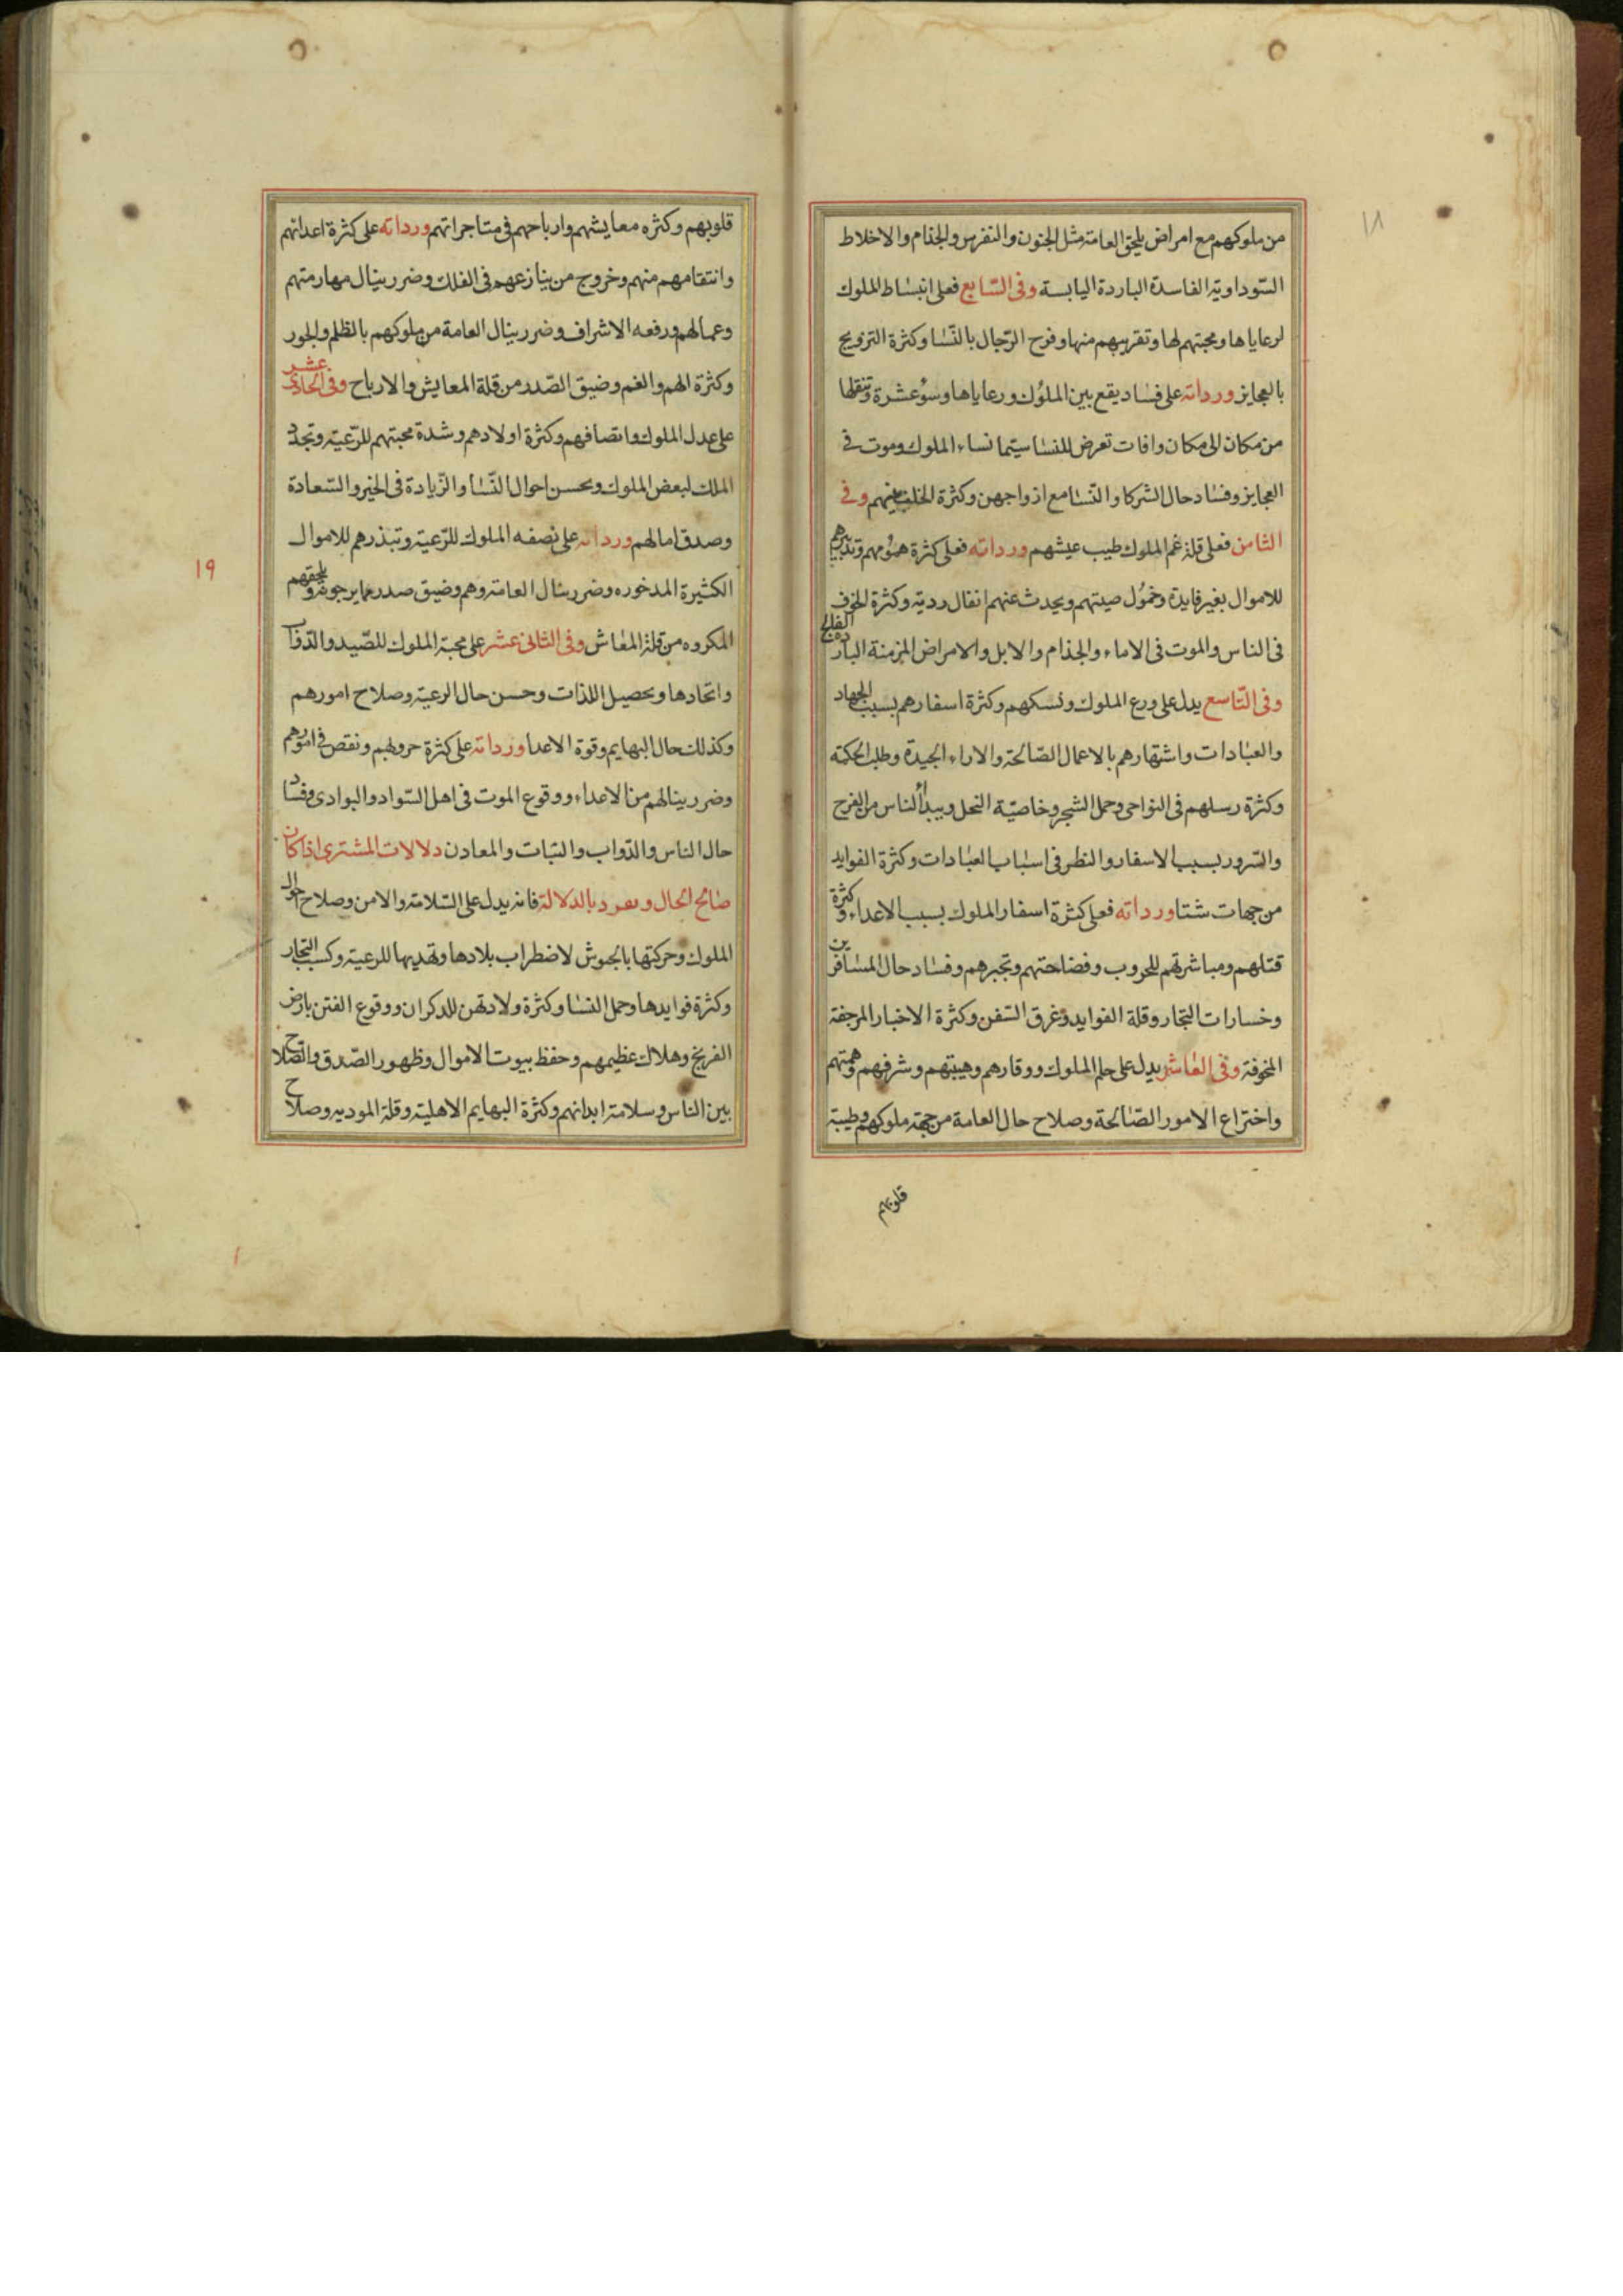 ١٨
من ملوكهم مع امراض يلحق العامة مثل الجنون والنقرس والجذام والاخلاط
السّوداوية الفاسدة الباردة اليابسة وفى السّابع فعلى انبساط الملوك
لرعاياها ومحبتهم لها وتقريبهم منها وفرح الرّجال بالنّسا وكثرة التزويج
بالعجايز ورداته على فساد يقع بين الملوك ورعاياها وسوُ عشرة وتنقلها
من مكان الى مكان وافات تعرض للنسا سيتما نساء الملوك وموت فى
العجايز وفساد حال الشركا والنّسا مع ازواجهن وكثرة الخلف بينهم وفى
الثامن فعلى قلة غم الملوك طيب عيشهم ورداته فعلى كثرة همومهم وتبذيرهم
للاموال بغير فايدة وخمُول صيتهم ويحدث عنهم انفال ردية وكثرة الخوف
فى الناس والموت فى الاماء والجذام والابل والامراض المزمنة الباردة الفالج
وفى التّاسع يدل على ورع الملوك ونسكهم وكثرة اسفارهم بسبب الجهاد
والعبادات واشتهارهم بالاعمال الصّالحة والاراء الجيدة وطلب الحكمة
وكثرة رسلهم فى النواحى وحمل الشجر وخاصيّة النحل ويبدأ الناس من الفرح
والسّرور بسبب الاسفار والنظر فى اسباب العبادات وكثرة الفوايد
من جهات شتا ورداته فعلى كثرة اسفار الملوك بسبب الاعداء وكثرة
قتلهم ومباشرتهم للحروب وفضاحتهم وتجبرهم وفساد حال المسافرين
وخسارات التجار وقلة الفوايد وغرق السّفن وكثرة الاخبار المرجفة
المخوفة وفى العاشر يدل على حلم الملوك ووقارهم وهيبتهم وشرفهم وهمتهم
واختراع الامور الصّالحة وصلاح حال العامة من جهة ملوكهم وطيبة
قلوبهم
قلوبهم وكثره معايشهم وارباحهم فى متاجراتهم ورداته على كثرة اعدائهم
وانتقامهم منهم وخروج من ينازعهم فى الفلك وضرر ينال مهارمتهم
وعمالهم ورفعه الاشراف وضرر ينال العامة من ملوكهم بالظلم والجور
وكثرة الهم والغم وضيق الصّدر من قلة المعايش والارباح وفى الحادى عشر
على عدل الملوك وانصافهم وكثرة اولادهم وشدة محبتهم للرّعية وتجدد
الملك لبعض الملوك ويحسن احوال النّسا والزّيادة فى الخير والسّعادة
وصدق امالهم ورداته على نصفه الملوك للرّعية وتبذرهم للاموال
الكثيرة المدخوره وضرر ينال العامة وهم وضيق صدر مما يرجونه ويلحقهم
١٩
المكروه من قلة المعاش وفى الثانى عشر على محبة الملوك للصّيد والدّواب
واتحادها وتحصيل اللذات وحسن حال الرعية وصلاح امورهم
وكذلك حال البهايم وقوة الاعدا ورداته على كثرة حروبهم ونقص فى امورهم
وضرر ينالهم من الاعداء ووقوع الموت فى اهل السّواد والبوادى وفساد
حال الناس والدّواب والنبات والمعادن دلالات المشترى اذا كان
صالح الحال وىفرد بالدلالة فانه يدل على السّلامة والامن وصلاح احوال
الملوك وحركتها بالجيوش لاضطراب بلادها وتهديها للرعية وكسب التجار
وكثرة فوايدها وحمل النسا وكثرة ولادتهن للذكران ووقوع الفتن بارض
الفرنج وهلاك عظيمهم وحفظ بيوت الاموال وظهور الصّدق والصّلاح
بين الناس وسلامة ابدانهم وكثرة البهايم الاهلية وقلة الموديه وصلاح